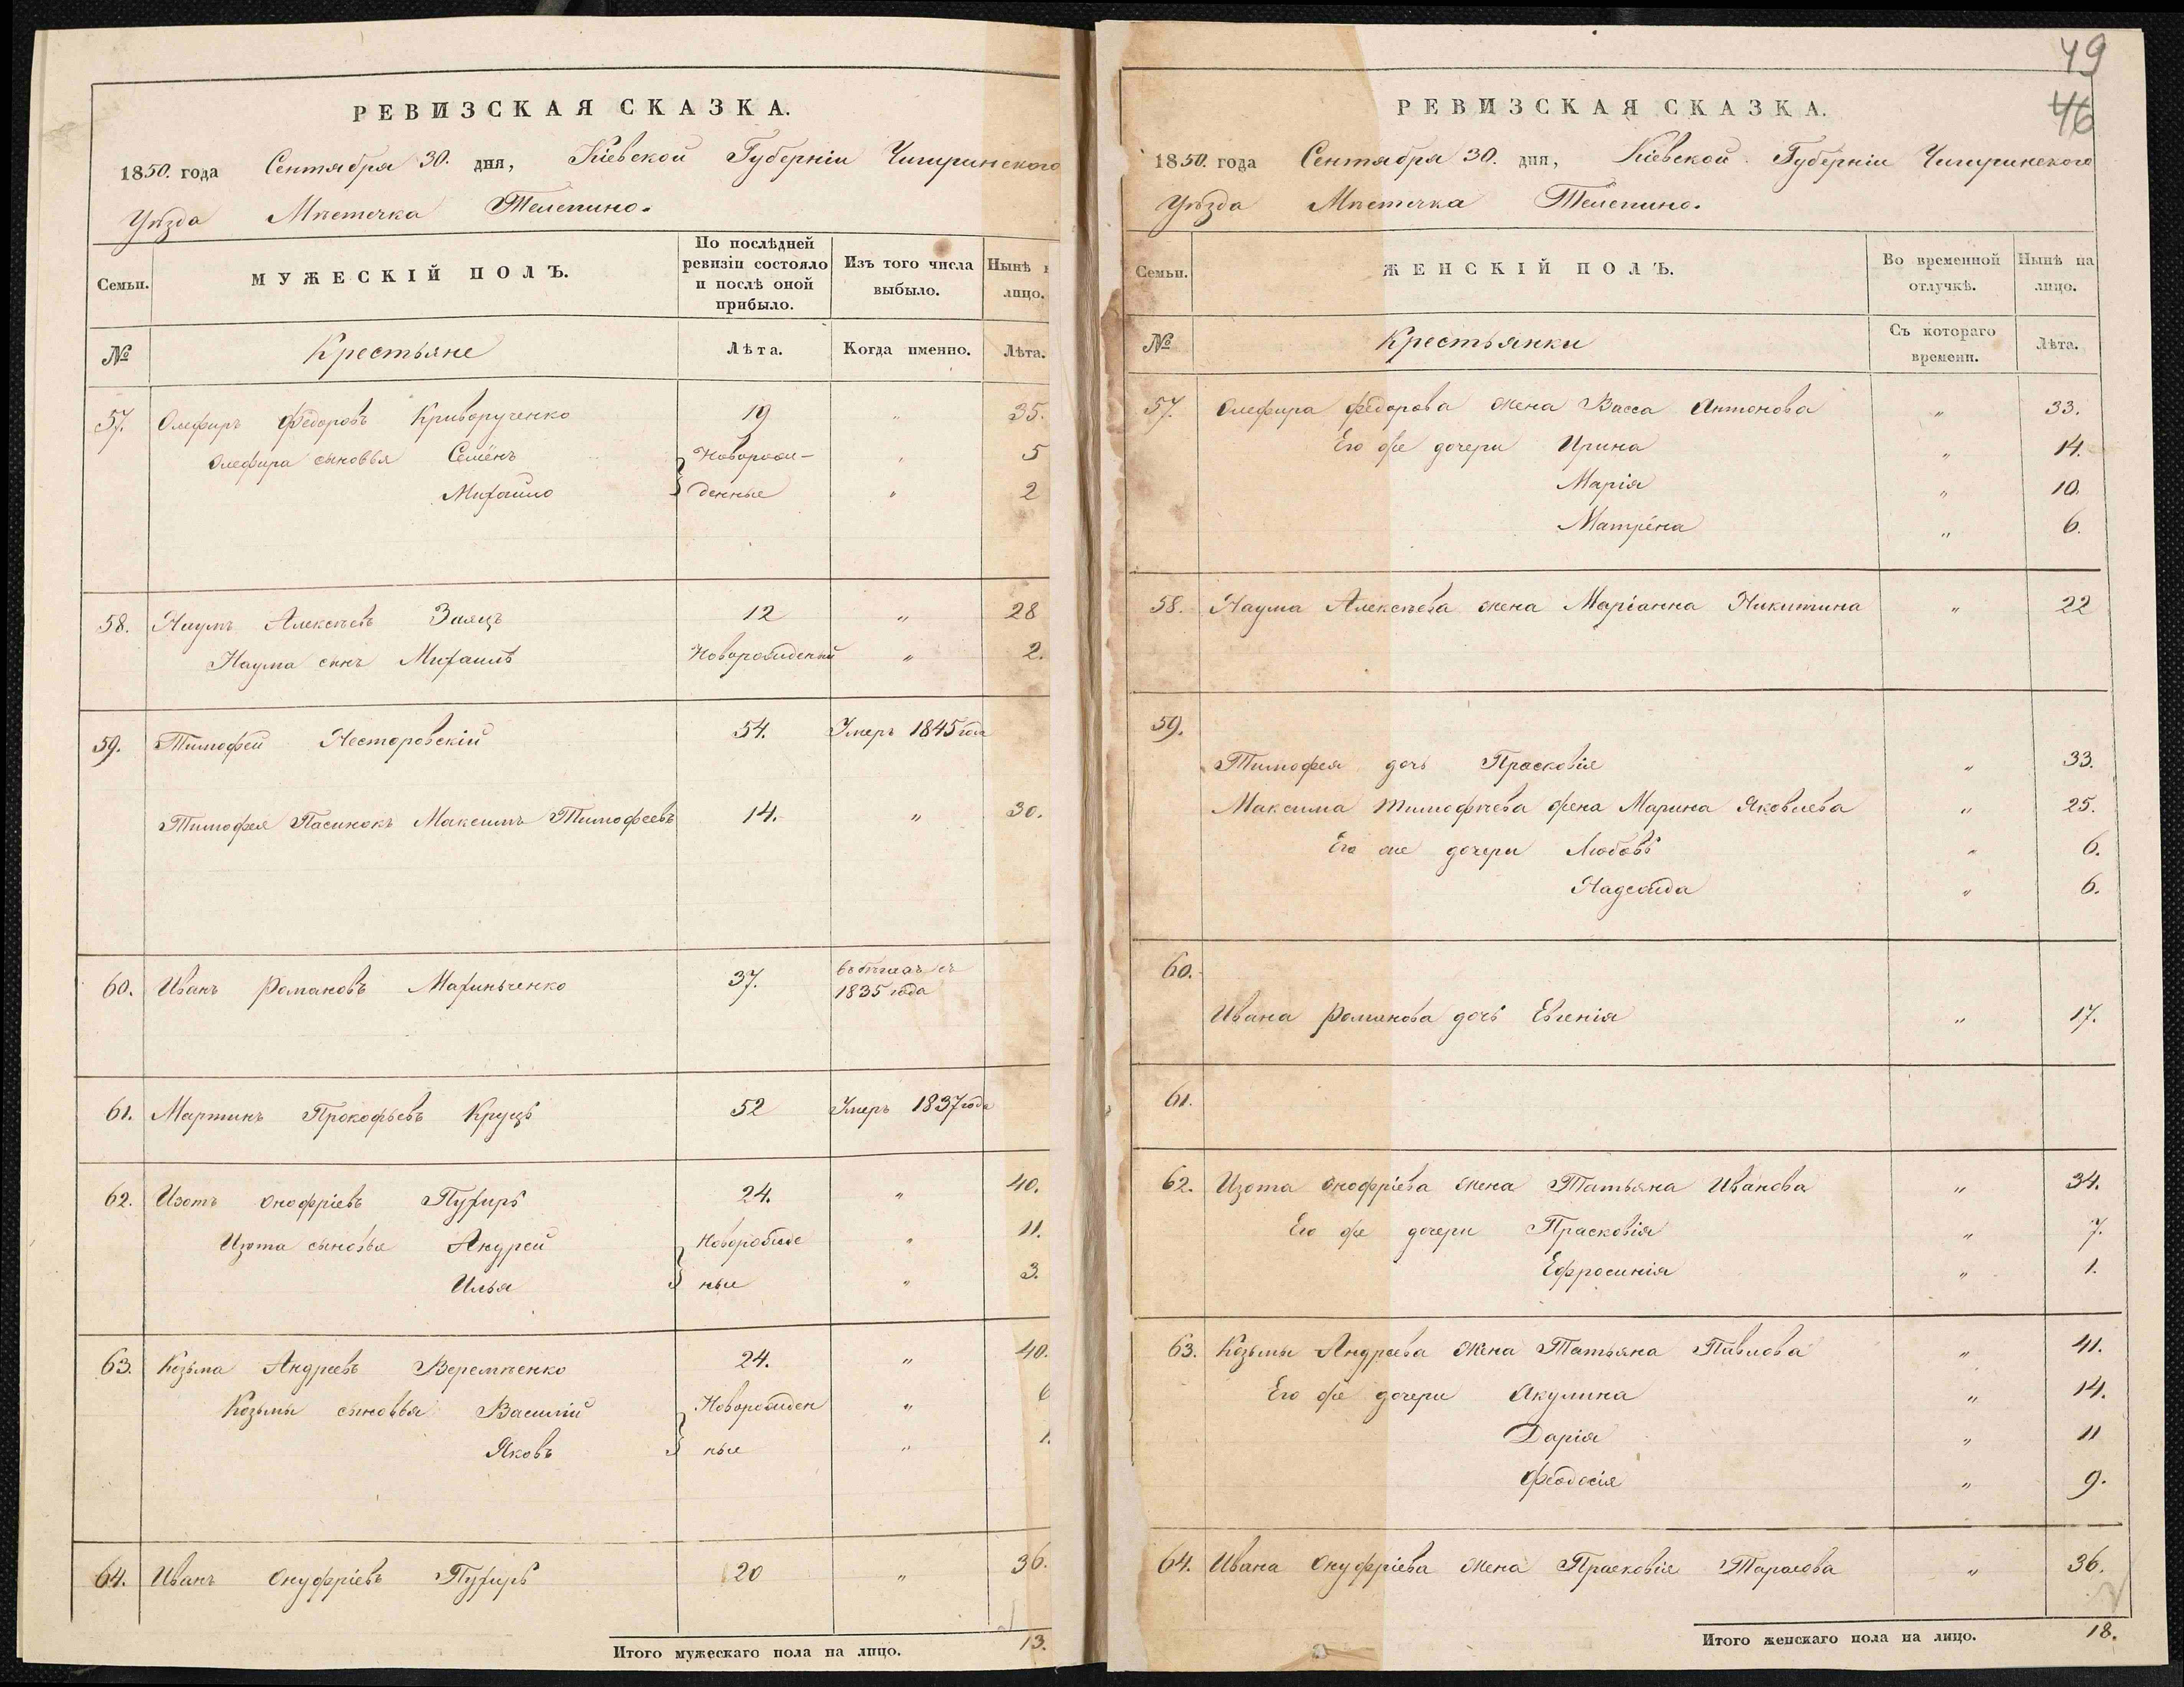 РЕВИЗСКАЯ СКАЗКА.
1850. года Сентября 30. дня, Кіевской Губерніи Чигиринского
Уѣзда Мѣстечка Телепино.
Семьи.
МУЖЕСКІЙ ПОЛЪ.
По послѣдней
ревизіи состояло
и послѣ оной
прибыло.
Изъ того числа
выбыло.
Нынѣ
лицо.
№
Крестьяне
Лѣта.
Когда именно.
Лѣта.
57. Олефиръ Федоровъ Криворученко 19 " 35.
Олефира сыновья Семёнъ Новорож- " 5
Михайло денные " 2
58. Наумъ Алексѣевъ Заяцъ 12 " 28
Наума сынъ Михаилъ Новорожденный " 2.
59. Тимофей Несторовскій 54. Умеръ 1845 года
Тимофея Пасинокъ Максимъ Тимофеевъ 14. " 30.
60. Иванъ Романовъ Махиньченко 37. въ бѣгахъ съ
1835 года
61. Мартинъ Прокофьевъ Круцъ 52 Умеръ 1837 года
62. Изотъ Онофріевъ Пухиръ 24. " 40.
Изота сыновья Андрей Новорожде " 11.
Илья ные " 3.
63. Козьма Андреевъ Веремѣенко 24. " 40.
Козьмы сыновья Василій Новорожден " 6
Яковъ ные " 1.
64. Иванъ Онуфріевъ Пухиръ 20 " 36.
Итого мужескаго пола на лицо. 13.
49
46
РЕВИЗСКАЯ СКАЗКА.
1850. года Сентября 30. дня, Кіевской Губерніи Чигиринского
Уѣзда Мѣстечка Телепино.
Семьи.
ЖЕНСКІЙ ПОЛЪ.
Во временной
отлучкѣ.
Нынѣ на
лицо.
№
Крестьянки
Съ котораго
времени.
Лѣта.
57. Олефира Федорова жена Васса Антонова " 33.
Его же дочери Ирина " 14.
Марія " 10.
Матрёна " 6.
58. Наума Алексѣева жена Маріанна Никитина " 22
59.
Тимофея дочь Прасковіе " 33.
Максима Тимофѣева жена Марина Яковлева " 25.
Его же дочери Любовь " 6.
Надежда " 6.
60.
Ивана Романова дочь Евгенія " 17.
61.
62. Изота Онофріева жена Татьяна Иванова " 34.
Его же дочери Прасковія " 7.
Ефросинія " 1.
63. Козьмы Андреева жена Татьяна Павлова " 41.
Его же дочери Акулина " 14.
Дарія " 11
Феодосія " 9.
64. Ивана Онуфріева жена Прасковіе Тарасова " 36.
Итого женскаго пола на лицо. 18.